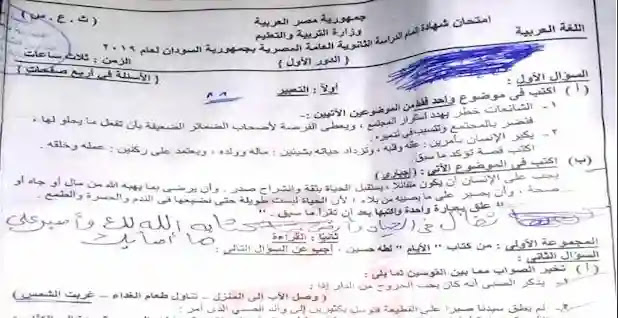 جمهورية مصر العربية
( ث . ع . س )
اللغة العربية
وزارة التربية والتعليم
امتحان شهادة إتمام الدراسة الثانوية العامة المصرية بجمهورية السودان لعام ٢٠١٩
( الدور الأول )
الزمن : ثلاث ساعات
( الأسئلة في أربع صفحات )
أولاً : التعبير
السؤال الأول :
( أ ) اكتب في موضوع واحد فقط من الموضوعين الآتيين :-
١ - الشائعات خطر يهدد استقرار المجتمع ، ويعطى الفرصة لأصحاب الضمائر الضعيفة بأن تفعل ما يحلو لها ،
فتضر بالمجتمع وتتسبب في تدميره .
٢ - يكبر الإنسان بأمرين : عقله وقلبه ، وتزداد حياته بشيئين : ماله وولده ، ويعتمد على ركنين : عمله وخلقه .
اكتب قصة تؤكد ما سبق
(ب) اكتب في الموضوع الآتي : (إجباري)
يجب على الإنسان أن يكون متفائلا ، يستقبل الحياة بثقة وانشراح صدر . وأن يرضى بما يهبه الله من مال أو جاه أو
صحة ، وأن يصبر على ما يصيبه من بلاء ، لأن الحياة ليست طويلة حتى نضيعها في الندم والحسرة والطمع .
" علق بعبارة واحدة واكتبها بعد أن تقرأ ما سبق . "
الله لك واصبر على
ما أصابك
ثانياً : القراءة
المجموعة الأولى : من كتاب " الأيام " لطه حسين ، أجب عن السؤال التالي :
السؤال الثاني :
( أ ) تخير الصواب مما بين القوسين لما يلي :
١- يذكر الصبي أنه كان يحب الخروج من الدار إذا :
( وصل الأب إلى المنزل - تناول طعام الغداء - غربت الشمس )
٢- لم يطق سيدنا صبرا على القطيعة فتوسل بكثيرين إلى والد الصبي الذي أمر :